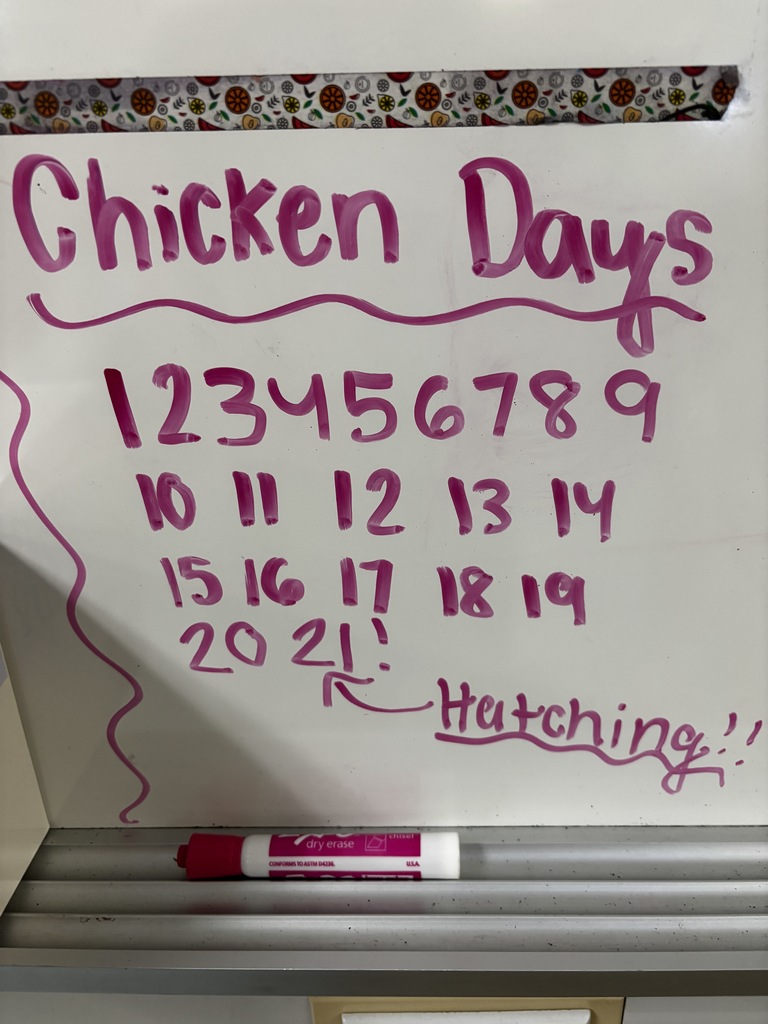 Chicken Days
1 2 3 4 5 6 7 8 9
10 11 12 13 14
15 16 17 18 19
20 21!
Hatching!!
dry erase chisel
CONFORMS TO ASTM D4236. U.S.A.